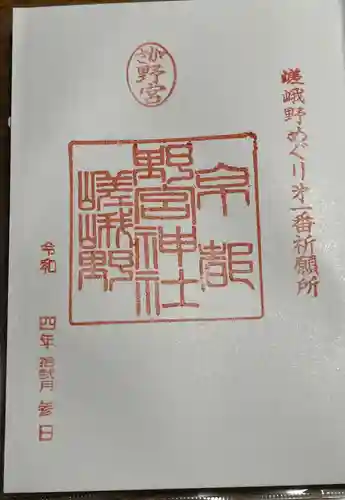 嵯峨野めぐり第一番祈願所
さが
野宮
京都
野宮神社
嵯峨野
令和 四年 拾弐月 参日